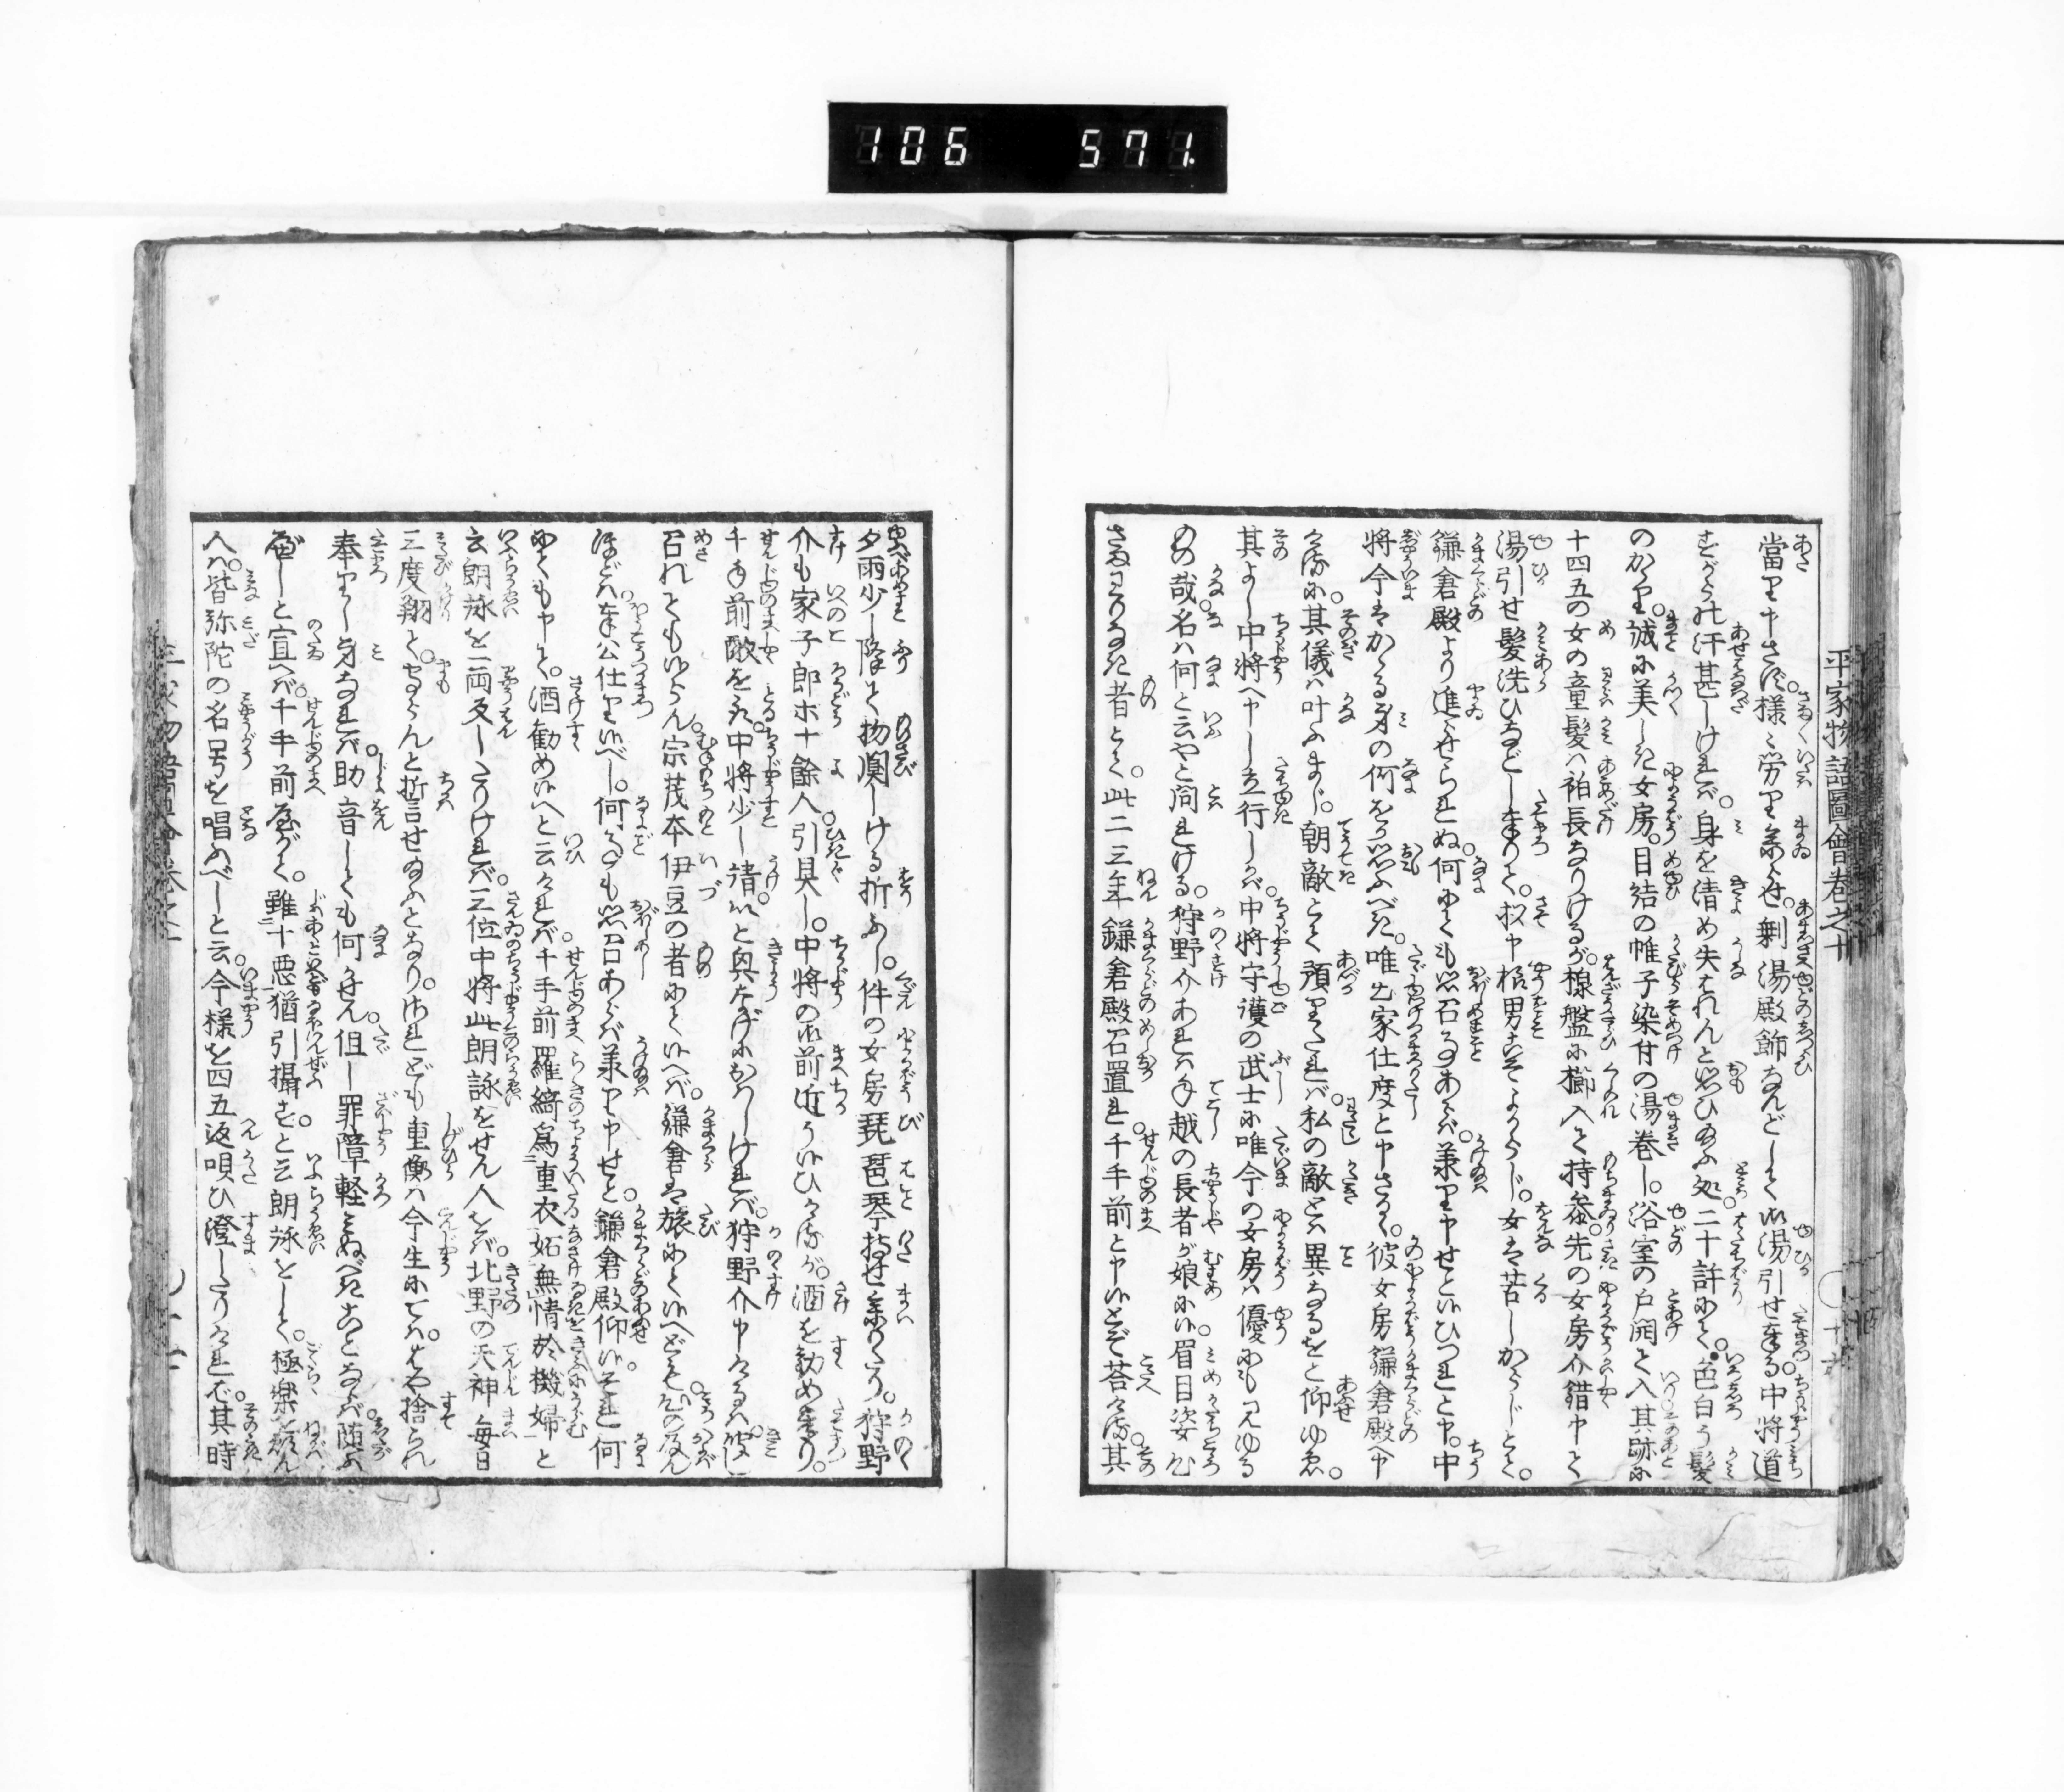 106 571.
平家物語圖會巻之十
當り申さば様々労り参らせ。剰湯殿飾なんどして御湯引せ奉る。中将道
すがらの汗甚しければ。身を清め失はれんと思ひ給ふ処。二十許にて。色白う髪
のかゝり。誠に美しき女房。目結の帷子染付の湯巻し。浴室の戸開て入其跡に
十四五の女の童髪ハ袙長なりけるが。楾盤に櫛入て持参。先の女房介錯申て
湯引せ髪洗ひなどし奉りて。扨申様男こそよからじ。女は苦しかるまじとて。
鎌倉殿より進せられぬ。何にても思召事あらば。承り申せとこそ候ひつれと申。中
将今はかゝる身の何をか思ふべき。唯出家仕度と申さる。彼女房鎌倉殿へ申
ければ。其儀ハ叶ふまじ。朝敵とて預りたれば。私の敵とハ異なるをと仰ゆゑ。
其よし中将へ申し立行しかば。中将守護の武士に唯今の女房ハ優にも見ゆる
もの哉。名ハ何と云やと問れける。狩野介あれハ手越の長者が娘に候。眉目姿心
ざまわりなき者とて。此二三年鎌倉殿召置れ。千手前と申候とぞ答ける。其
夕雨少し降て物淋しける折ふし。件の女房琵琶琴持せ参りたり。狩野
介も家子郎等十餘人引具し。中将の御前近う候ひけるが。酒を勧め奉り。
千手前酌をとる。中将少し請けいと興なげにおハしければ。狩野介申けるハ。彼に
召れともゆらん。宗茂本伊豆の者にて候へば。鎌倉は旅にて候へども。心の及ん
ほどハ。奉公仕り候べし。何事も思召あらば承り申せと。鎌倉殿仰候。それ何
にても申て。酒勧め候へと云ければ。千手前羅綺為重衣妬無情於機婦と
云朗詠を一両反したりければ。三位中将此朗詠をせん人をば。北野の天神毎日
三度翔て。守らんと誓せ給ふとなり。されども重衡ハ今生にてハ。はや捨られ
奉りし身なれば。助音しても何かせん。但し罪障軽みぬべきことならば。随ふ
べしと宣へば。千手前やがて。雖十悪猶引攝すと云朗詠をして。極楽を願ん
人ハ。皆弥陀の名号を唱ふべしと云。今様を四五返唄ひ澄したりければ。其時